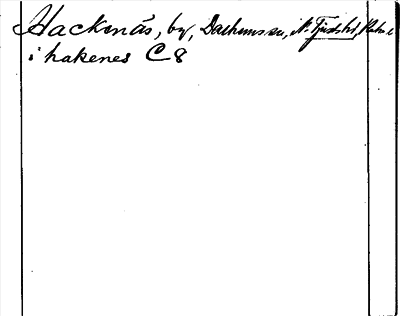 Hacknäs, by, Dalhems sn, N. Tjusts hd, Kalm. l.
i hakenes C 8